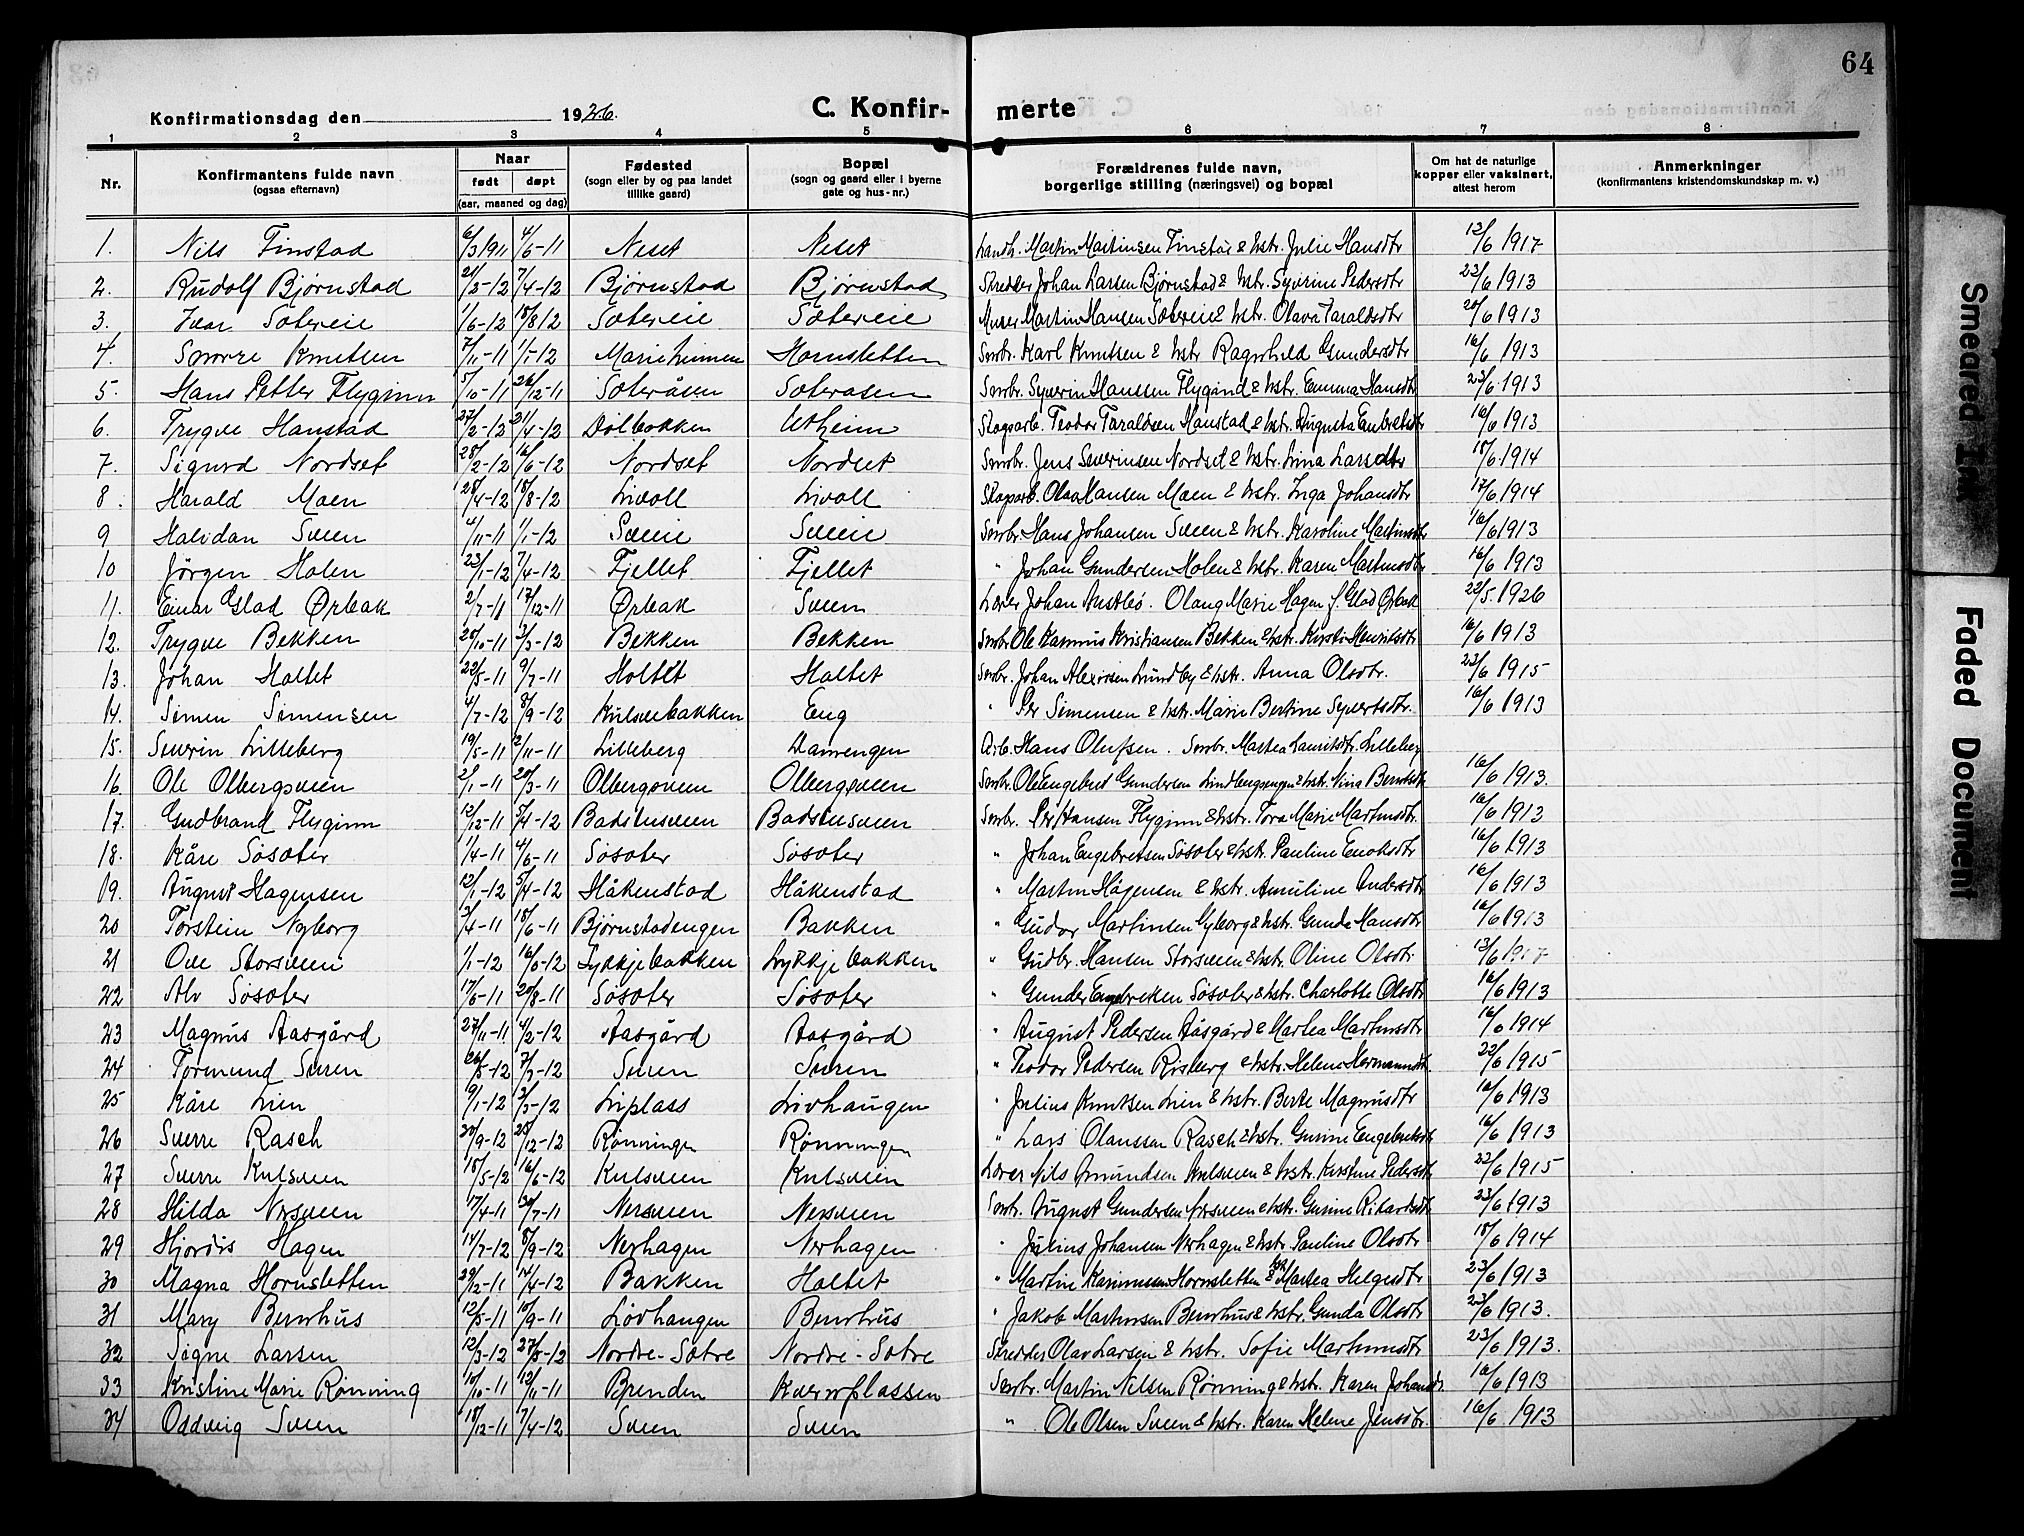 64
Konfirmationsdag den 1926. C. Konfir- merte
1 2 3 4 5 6 7 8
Nr. Konfirmantens fulde navn (ogsaa efternavn) Naar født døpt (aar, maaned og dag) Fødested (sogn eller by og paa landet tillike gaard) Bopæl (sogn og gaard eller i byerne gate og hus-nr.) Forældrenes fulde navn, borgerlige stilling (næringsvei) og bopæl Om hat de naturlige kopper eller vaksinert, attest herom Anmerkninger (konfirmantens kristendomskundskap m. v.)
1. Nils Finstad 6/3 1911 4/6-11 Neset Neset Landh. Martin Martinsen Finstad & hstr. Julie Hansdtr 13/6 1917
2. Rudolf Bjørnstad 21/2-12 7/4-12 Bjørnstad Bjørnstad Skredder Johan Larsen Bjørnstad & hstr. Syverine Pedersdtr 23/6 1913
3. Ivar Sætereie 1/6-12 18/8 12 Sætereie Sætereie Murer Martin Hansen Sætereie & hstr. Olava Taraldsdtr 20/6 1913
4. Sverre Knutsen 7/11-11 1/1-12 Marielunnen Hornsletten Smbr. Karl Knutsen & hstr Ragnhild Gundersdtr 16/6 1913
5. Hans Petter Flyginn 5/10-11 26/12-11 Sæteråsen Sæteråsen Smbr. Syverin Hanssen Flygind & hstr. Emma Hansdtr 23/6 1913
6. Trygve Hanstad 27/2-12 21/4-12 Dølbakken Utheim Skogsarb. Teodor Taraldsen Hanstad & hstr. Augusta Embretsdtr 16/6 1913
7. Sigurd Nordset 28/2-12 16/6-12 Nordset Nordset Smbr. Jens Severinsen Nordset & hstr. Lina Larsdtr 18/6 1914
8. Harald Moen 28/4-12 18/8-12 Livoll Livoll Skogarb. Olav Hansen Moen & hstr. Inga Johansdtr 17/6 1914
9 Halvdan Sveen 4/11-11 1/1-12 Sveeie Sveeie Smbr. Hans Johansen Sveen & hstr. Karoline Martinsdtr 16/6 1913
10 Jørgen Holen 23/1-12 7/4-12 Fjellet Fjellet " Johan Gundersen Holen & hstr. Karen Martinsdtr 16/6 1913
11. Einar Glad Ørbæk 2/7-11 17/12-11 Ørbæk Sveen Lærer Johan Austbø. Olaug Marie Hagen f. Glad Ørbæk 22/5 1926
12. Trygve Bekken 20/10-11 3/3-12 Bekken Bekken Smbr. Ole Rasmus Kristiansen Bekken & hstr. Kirsti Henriksdtr 16/6 1913
13. Johan Holtet 22/5-11 9/7-11 Holtet Holtet Smbr. Johan Alexissen Lundby & hstr. Anna Olsdtr. 23/6 1915
14. Simen Simensen 4/7-12 8/9-12 Kulsvebakken Eng " Per Simensen & hstr. Marie Bertine Syvertsdtr. 16/6 1913
15. Severin Lilleberg 19/5-11 2/11-11 Lilleberg Damengen Arb. Hans Olufsen. Smbr. Martea Lauritsdtr. Lilleberg
16. Ole Olbergsveen 2/1-11 20/3-11 Olbergsveen Olbergsveen Smbr. Ole Engebret Gundersen 16/6 1913.
17. Gudbrand Flyginn 12/12-11 5/4-12 Badstusveen Badstusveen Smbr. Per Hansen Flyginn & hstr. Tora Marie Martinsdtr. 16/6 1913
18. Kåre Søsæter 1/4-11 4/6-11 Søsæter Søsæter " Johan Engebretsen Søsæter & hstr. Pauline Enoksdtr 16/6 1913
19. August Hagensen 12/1-12 5/4-12 Håkenstad Håkenstad " Martin Hågensen & hstr. Anuline Andersdtr 16/6 1913
20 Torstein Nyborg 3/4-11 18/6-11 Bjørnstadengen Bakken " Gudor Martinsen Nyborg & hstr. Gunda Hansdtr 16/6 1913
21 Ove Storsveen 1/1-12 16/6-12 Lykkjebakken Lykkjebakken " Gudbr. Hansen Storsveen & hstr. Oline Olsdtr. 13/6
22 Alv Søsæter 17/6-11 20/8-11 Søsæter Søsæter " Gunder Engebretsen Søsæter & hstr. Charlotte Olsdtr 16/6 1913
23 Magnus Aasgård 27/11-11 4/2-12 Aasgård Aasgård " August Pedersen Aasgård & Martea Martinsdtr 16/6 1914
24 Tormund Sveen 26/5-12 7/7-12 Sveen Sveen " Teodor Pedersen Risberg & hstr. Helene Hermannsdtr. 22/6 1915
25 Kåre Lien 9/1-12 3/3-12 Liplass Livhaugen " Julius Knutsen Lien & hstr. Berte Magnusdtr 16/6 1913
26 Sverre Rasch 20/9-12 25/12-12 Rønningen Rønningen " Lars Olaussen Rasch & hstr. Gusine Engebretsdtr 16/6 1913
27 Sverre Kulsveen 18/5-12 16/6-12 Kulsveen Kulsveien Lærer Nils Amundsen Kulsveen & hstr. Kirstine Pedersdtr 22/6 1915
28 Hilda Nersveen 17/4-11 30/7-11 Nersveen Nersveen Smbr. August Gundersen Nersveen & hstr. Gusine Rikardsdtr 23/6 1913
29 Hjørdis Hagen 14/7-12 8/9-12 Nerhagen Nerhagen " Julius Johansen Nerhagen & hstr. Pauline Olsdtr 18/6 1914
30 Magna Hornsletten 29/12-11 14/4-12 Bakken Holtet " Martin Rasmussen Hornsletten & hstr Martea Helgesdtr 23/6 1913
31 Mary Bernhus 12/5-11 10/9-11 Løvhaugen Bernhus " Jakob Martinsen Bernhus & hstr. Gunda Olsdtr 23/6 1913.
32 Signe Larsen 12/3-12 27/5-12 Nordre-Sætre Nordre-Sætre Skredder Olav Larsen & hstr. Sofie Martinusdtr 23/6 1913.
33 Kristine Marie Rønning 10/10-11 12/11-11 Brenden Kvernplassen Smbr. Martin Nilsen Rønning & hstr. Karen Johansdtr. 16/6 1913
34 Oddveig Sveen 18/12-11 7/4-12 Sveen Sveen " Ole Olsen Sveen & hstr. Karen Helene Jensdtr. 16/6 1913
Smeared Ink
Faded Document